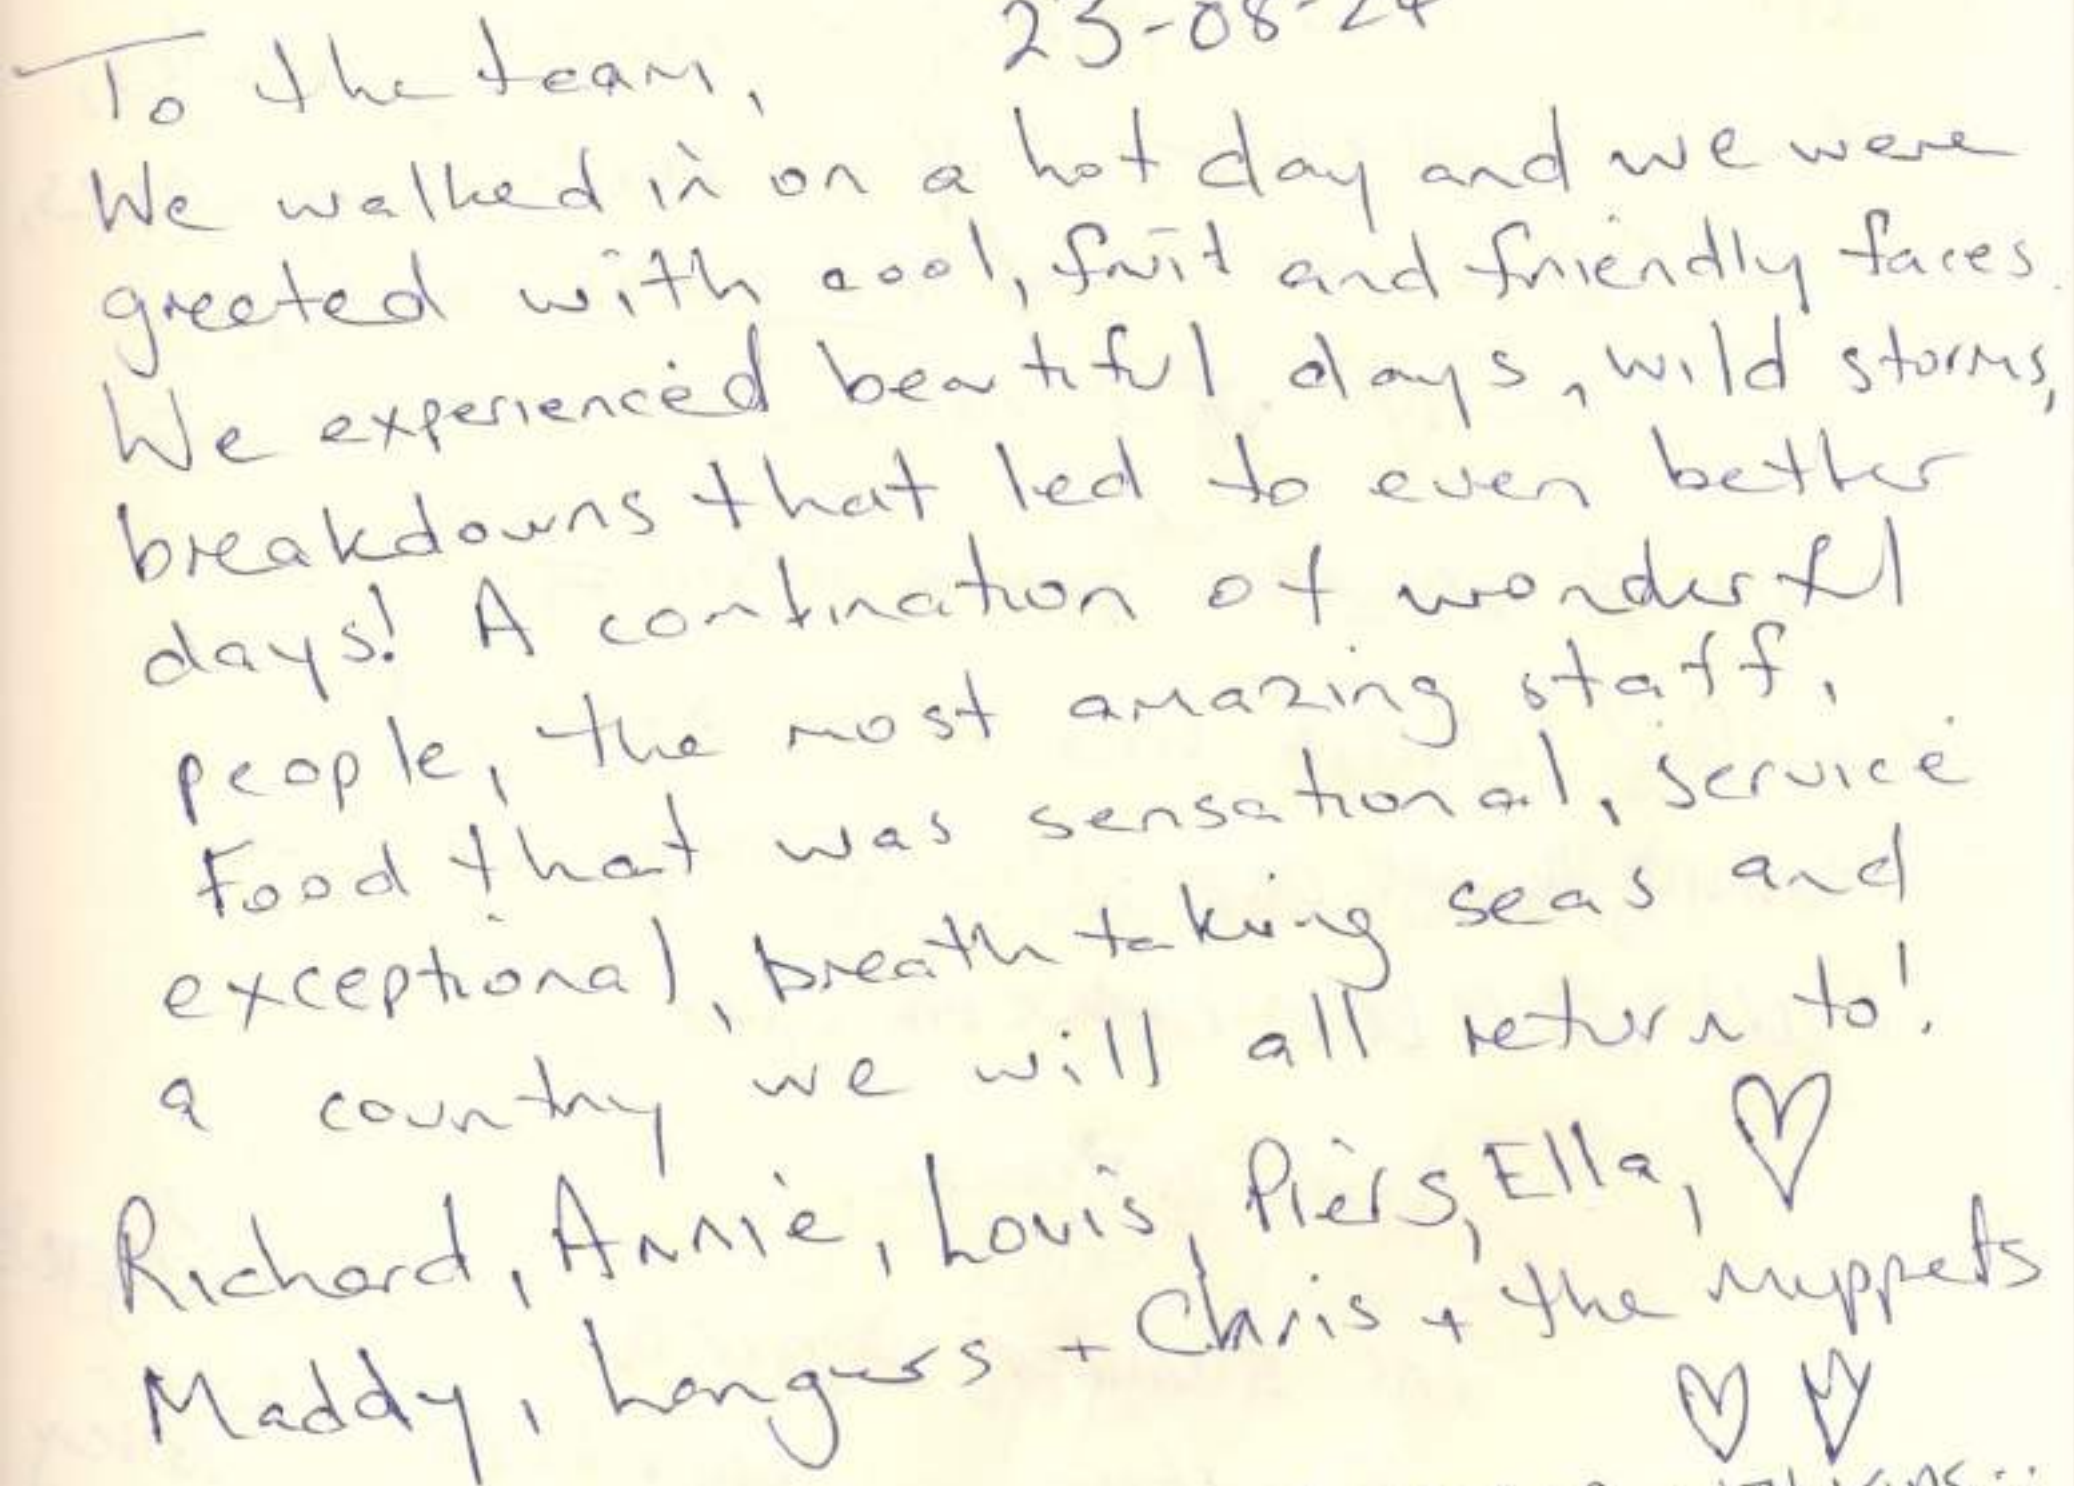 23-08-24
To the team,
We walked in on a hot day and we were
greeted with cool, fruit and friendly faces.
We experienced beautiful days, wild storms,
breakdowns that led to even better
days! A combination of wonderful
people, the most amazing staff,
Food that was sensational, service
exceptional, breathtaking seas and
a country we will all return to!
Richard, Annie, Louis, Piers, Ella, ♡
Maddy, + Chris + the muppets
♡ ♡